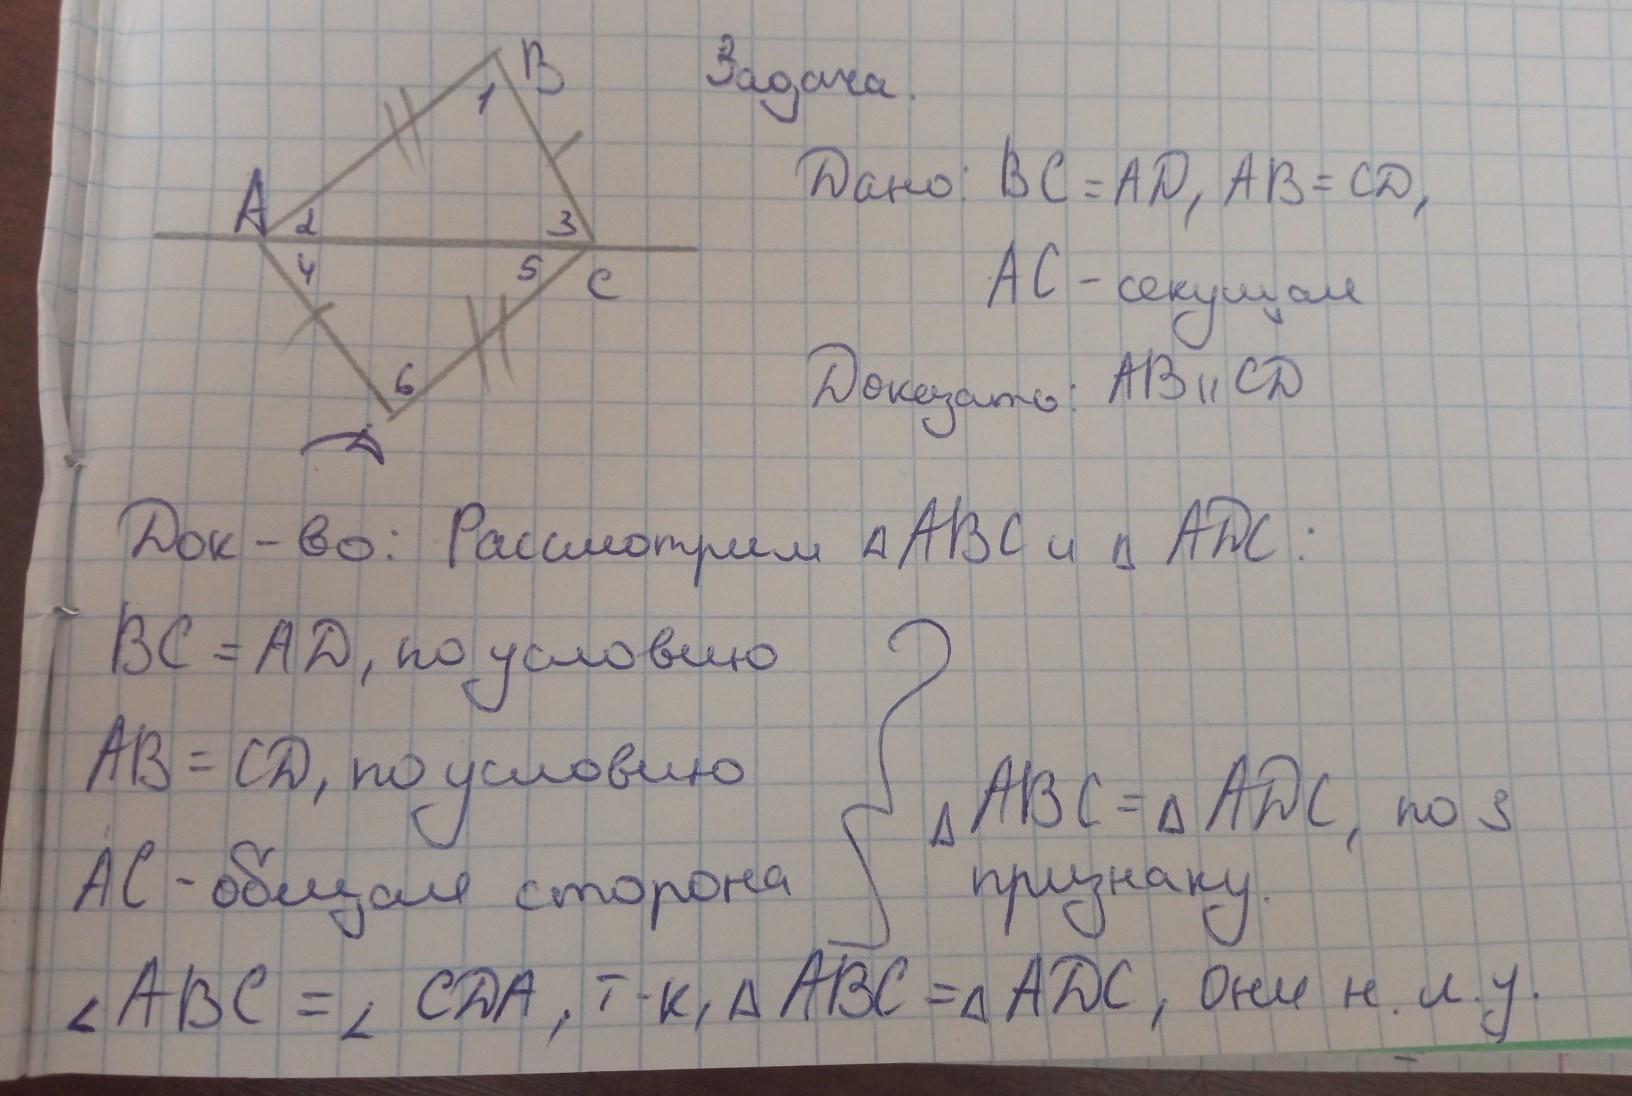 B
Задача.
1
Дано: BC = AD, AB = CD,
A
2
3
4
5
C
AC - секущая
6
Доказать: AB || CD
Д
Док-во: Рассмотрим △ABC и △ ADC:
BC = AD, по условию
AB = CD, по условию
△ABC = △ ADC, по 3
AC - общая сторона
признаку.
∠ABC = ∠ CDA, т-к, △ ABC = △ ADC, они н. л. у.